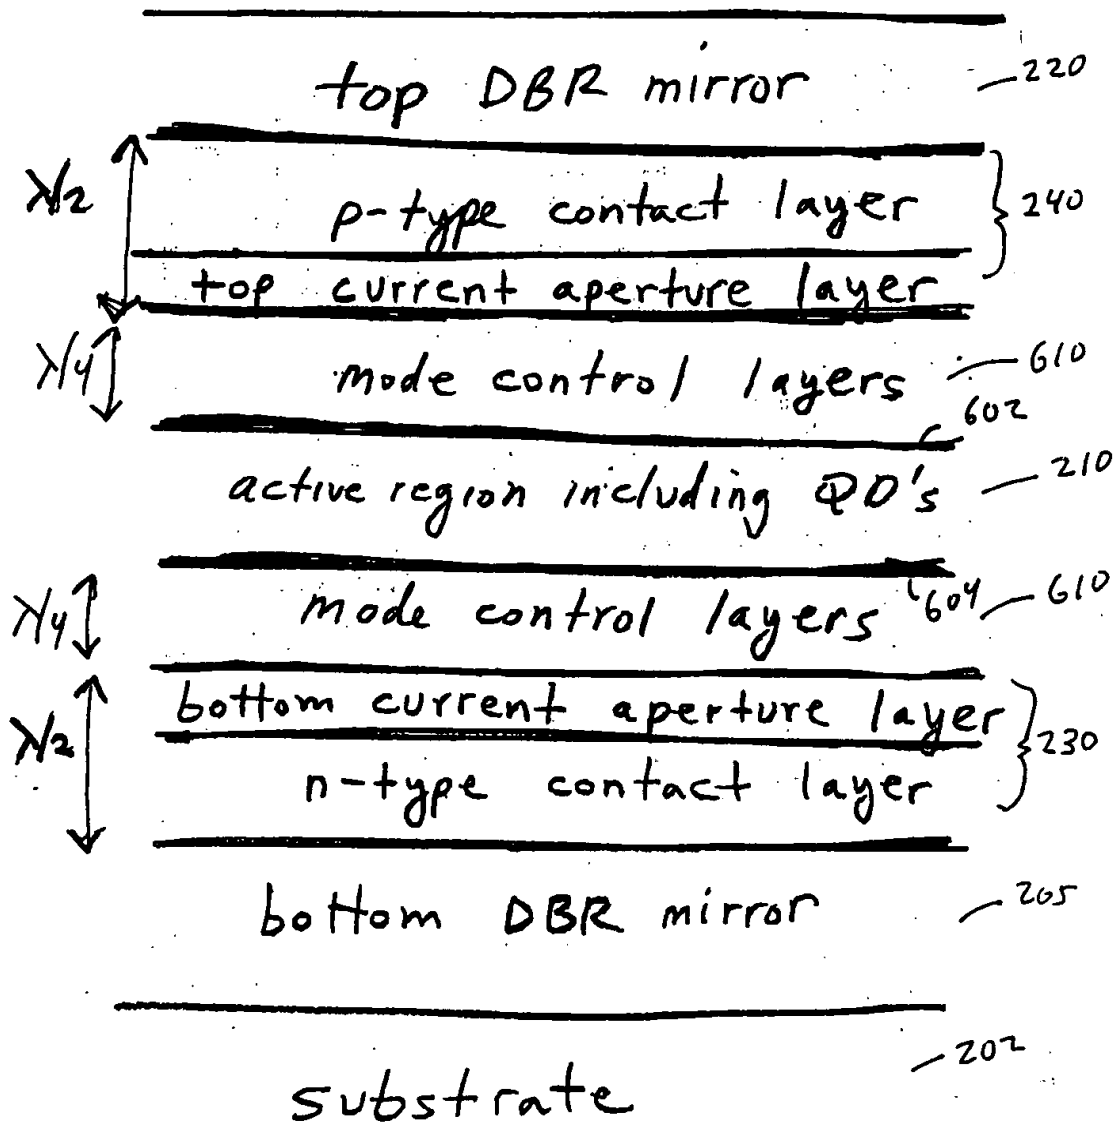 top DBR mirror 220
λ/2 p-type contact layer 240
top current aperture layer
λ/4 mode control layers 610
602
active region including QD's 210
λ/4 mode control layers 604 610
bottom current aperture layer
λ/2 230
n-type contact layer
bottom DBR mirror 205
substrate 202